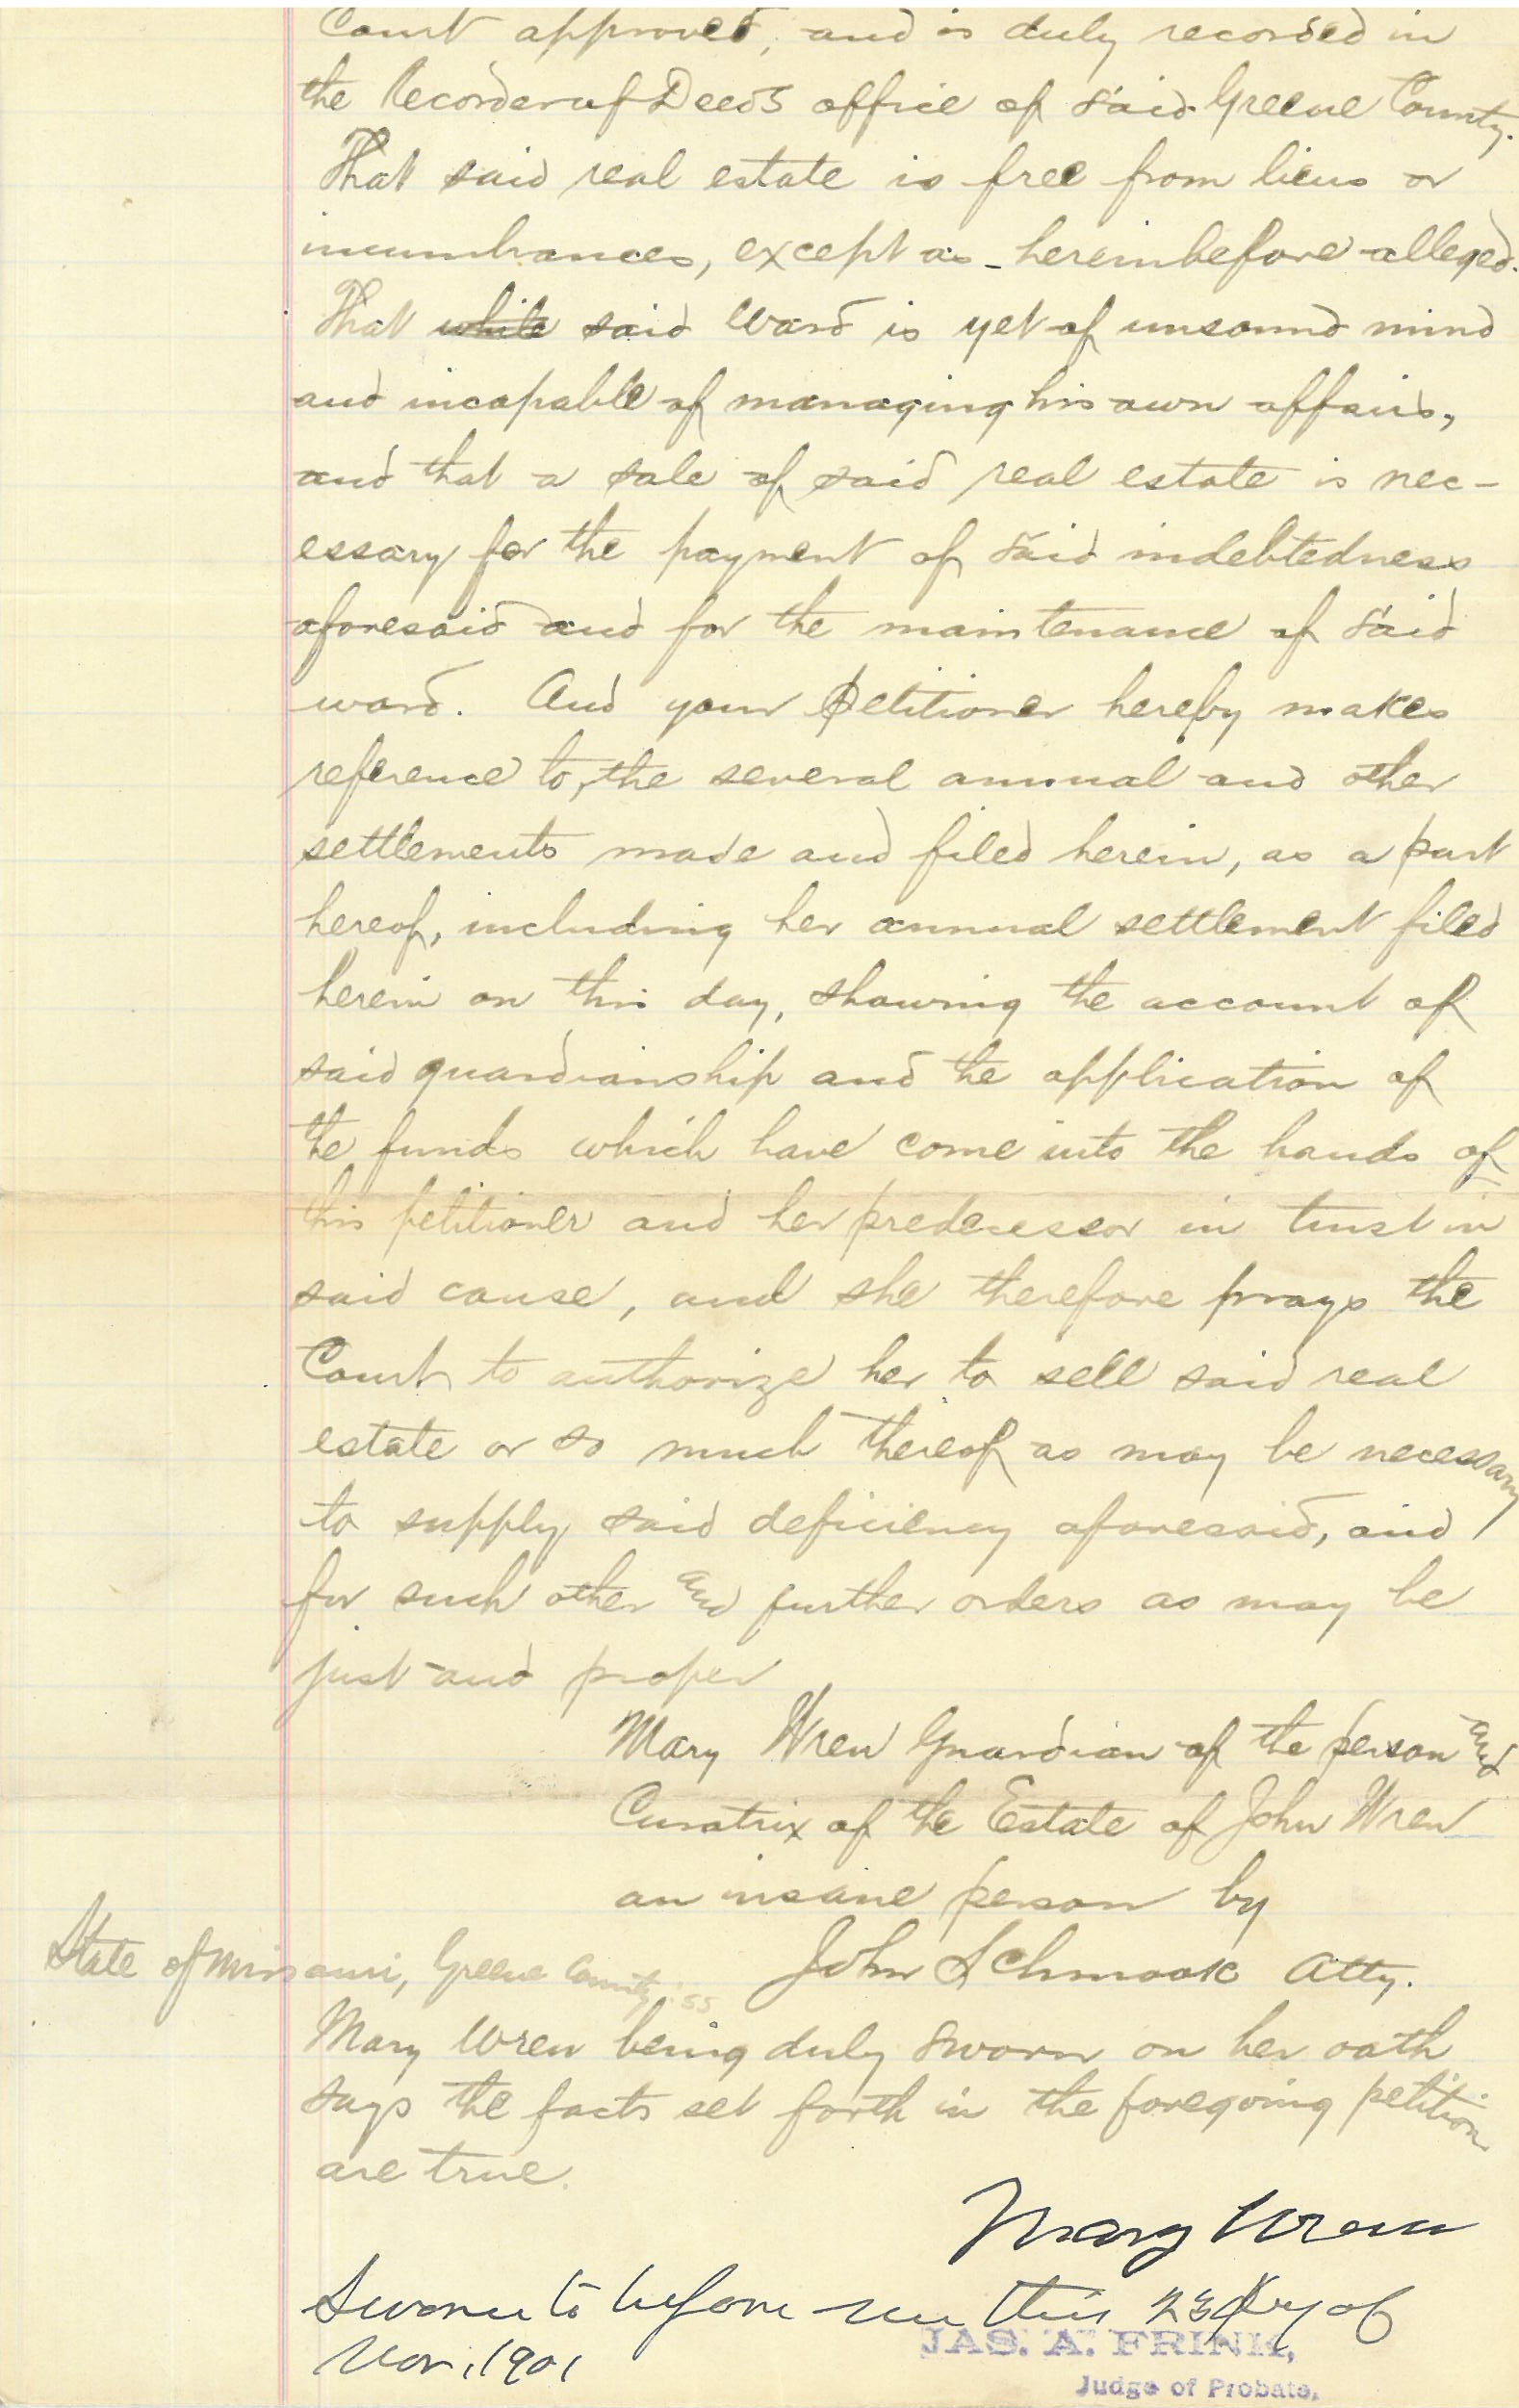 Court approved, and is duly recorded in
the Recorder of Deeds office of said Greene County.
That said real estate is free from liens or
incumbrances, except as hereinbefore alleged.
That while said Ward is yet of unsound mind
and incapable of managing his own affairs,
and that a sale of said real estate is nec-
essary for the payment of said indebtedness
aforesaid and for the maintenance of said
ward. And your Petitioner hereby makes
reference to, the several annual and other
settlements made and filed herein, as a part
hereof, including her annual settlement filed
herein on this day, showing the account of
said guardianship and the application of
the funds which have come into the hands of
this petitioner and her predecessor in trust in
said cause, and she therefore prays the
Court to authorize her to sell said real
estate or so much thereof as may be necessary
to supply said deficiency aforesaid, and
for such other and further orders as may be
just and proper
Mary Wren Guardian of the person and
Curatrix of the Estate of John Wren
an insane person by
John Schmook Atty.
State of Missouri, Greene County: ss
Mary Wren being duly sworn on her oath
says the facts set forth in the foregoing petition
are true.
Mary Wren
Sworn to before me this 23 day of
Nov. 1901
JAS. A. FRINK,
Judge of Probate.